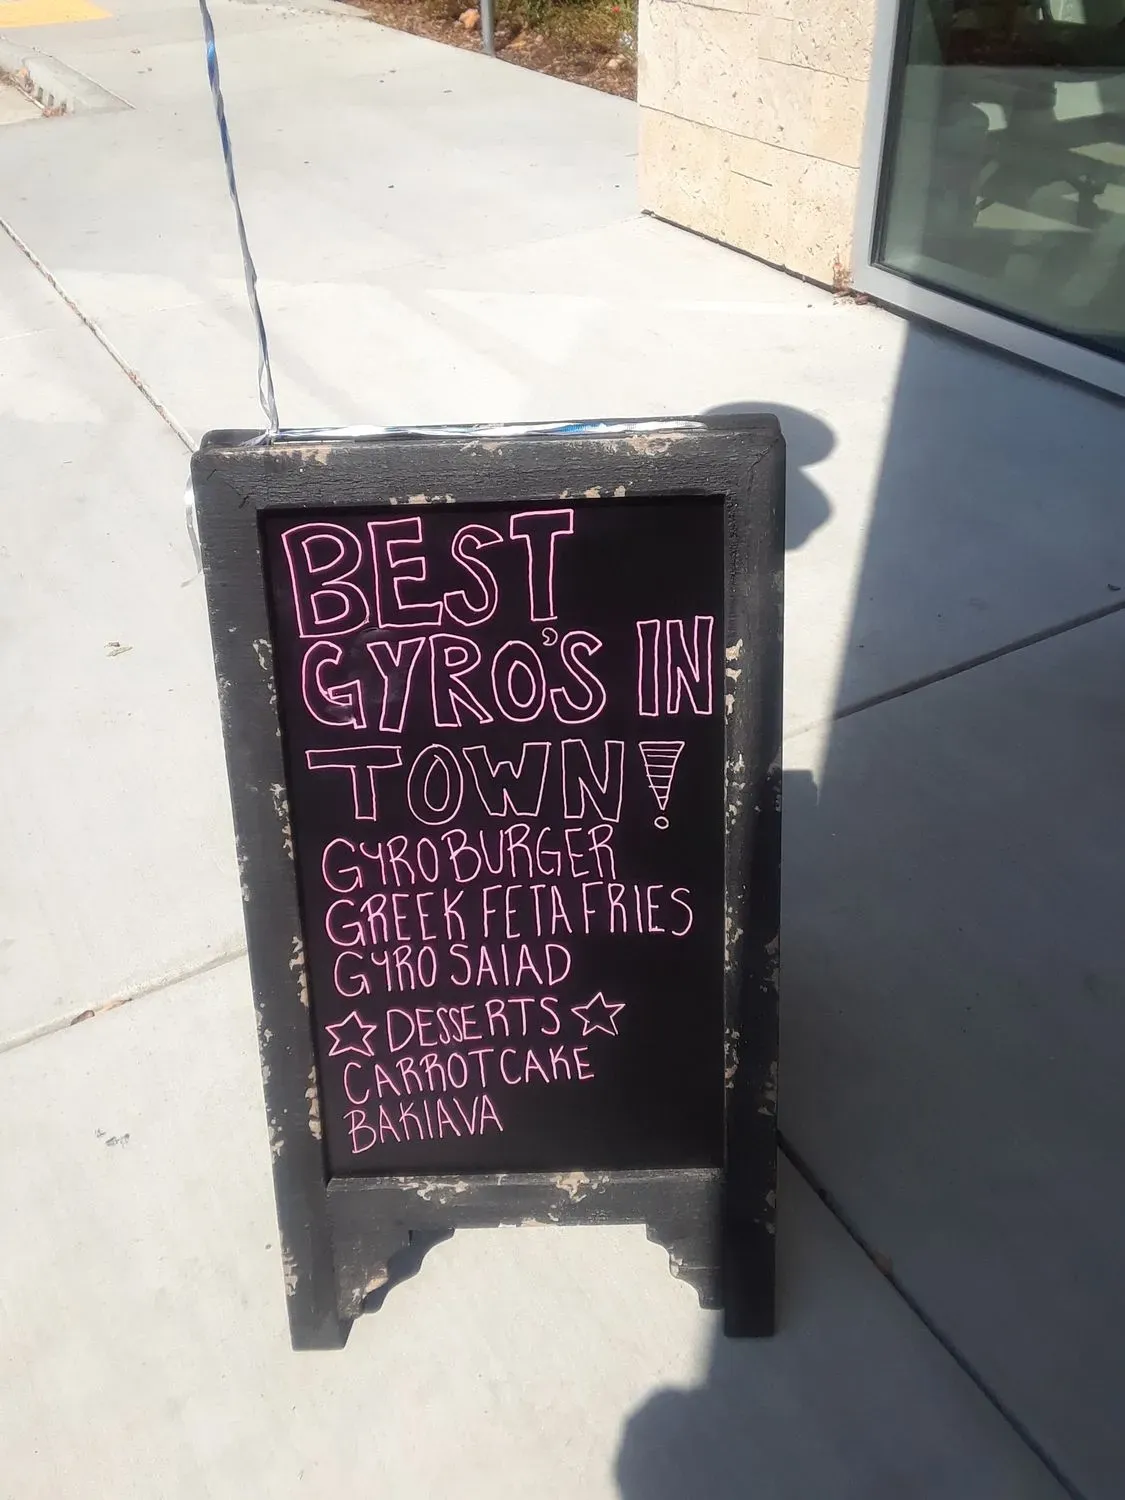 BEST
GYRO'S IN
TOWN!
GYRO BURGER
GREEK FETA FRIES
GYRO SALAD
☆ DESSERTS ☆
CARROT CAKE
BAKLAVA